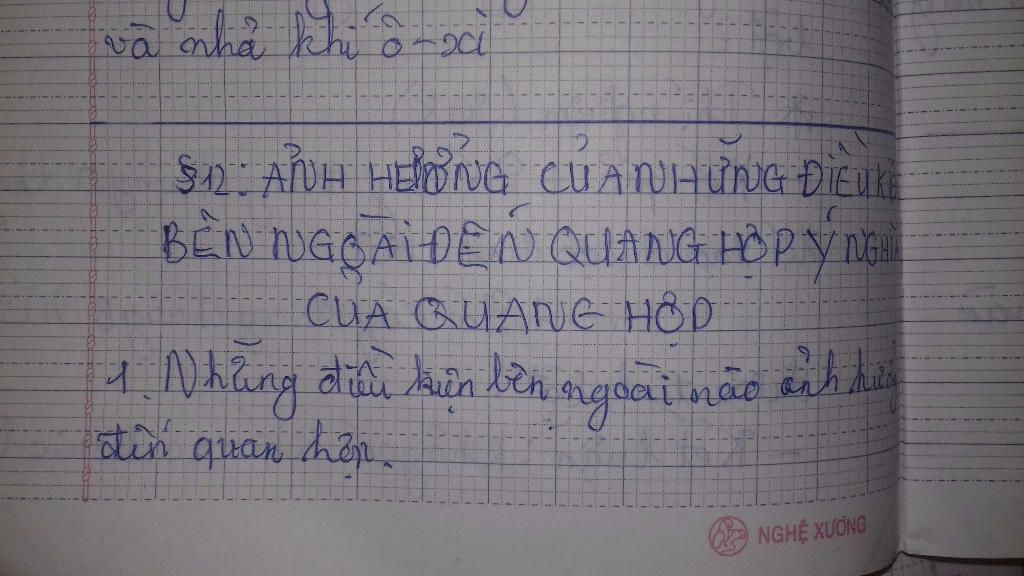 và nhả khí ô-xi
§12: ẢNH HƯỞNG CỦA NHỮNG ĐIỀU KIỆ
BÊN NGOÀI ĐẾN QUANG HỢP Ý NGHĨA
CỦA QUANG HỢP
1. Những điều kiện bên ngoài nào ảnh hưởng
đến quan hợp.
NGHỆ XƯƠNG